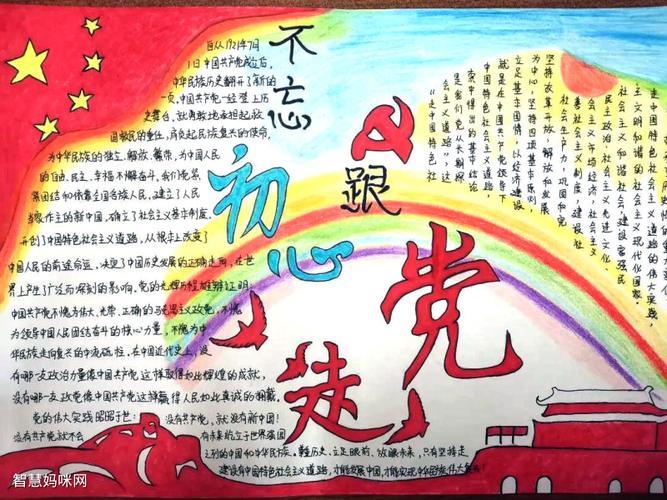 不忘
初心
跟
党
走
自从1921年7月
1日中国共产党成立后，
中华民族历史翻开了新的
一页，中国共产党一经登上历
史舞台，就勇敢地查担起救
国救民的重任，肩负起民族复兴的使命，
为中华民族的独立、解放、繁荣，为中国人民
的自由、民主、幸福不懈奋斗，我们党紧
紧团结和依靠全国各族人民，建立了人民
当家作主的新中国，确立了社会主义基本制度，
开创了中国特色社会主义道路，从根本上改变了
中国人民的前途命运，决定了中国历史发展的正确走向，在世
界上产生了广泛而深刻的影响，党的光辉历程雄辩证明：
中国共产党不愧为伟大、光荣、正确的马克思主义政党，不愧
为领导中国人民团结奋斗的核心力量，不愧为中
华民族走向复兴的中流砥柱，在中国近代史上，没
有哪一支政治力量像中国共产党这样取得如此辉煌的成就，
没有哪一支政党像中国共产党这样赢得人民如此真诚的拥戴，
党的伟大实践昭昭于世：没有共产党，就没有新中国！
没有共产党就不会有未屹立于世界强国
之列的中国和中华民族。鞭历史、立足眼前、放眼未来，只有坚持走
建设有中国特色社会主义道路，才能发展中国，才能实现中华民族伟大复兴！
走中国特色社会主义
主文明和谐的社会主义现代化国家。
社会主义和谐社会，建设富强民
民主政治，社会主义先进文化，
会主义市场经济，社会主义
善社会主义制度，建设社
社会生产力，巩固和完
坚持改革开放，解放和发展
为中心，坚持四项基本原则
立足基本国情，以经济建设
就是在中国共产党领导下
中国特色社会主义道路，
索中得出的基本结论
是我们党从长期探
"走中国特色社
会主义道路"，这
智慧妈咪网